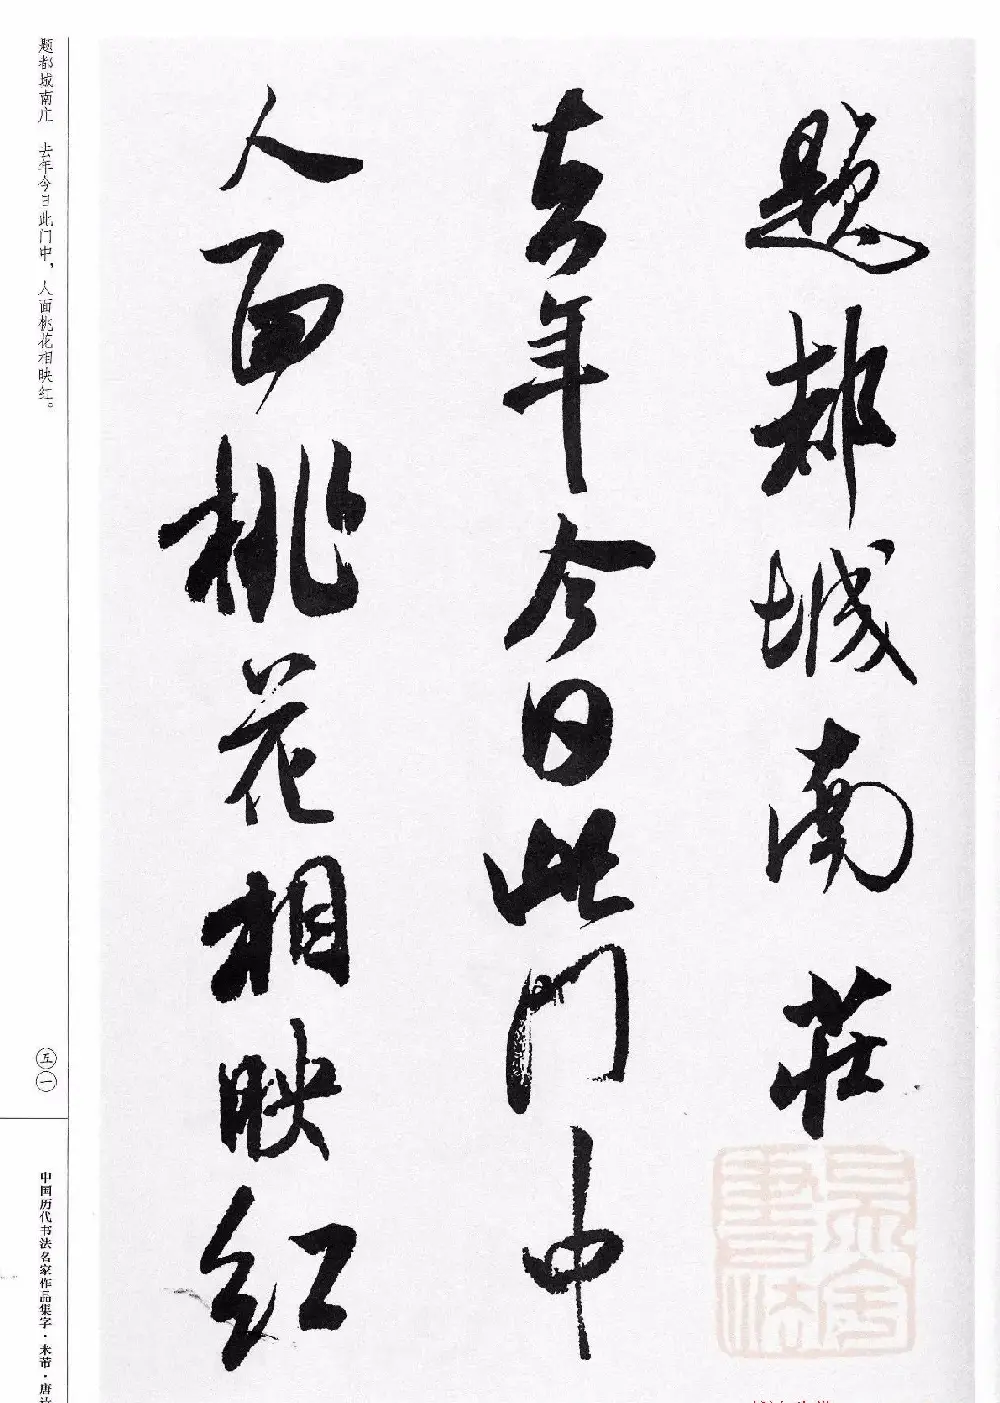 題都城南莊
去年今日此門中
人面桃花相映紅
题都城南庄 去年今日此门中，人面桃花相映红。
五一
中国历代书法名家作品集字·米芾·唐诗